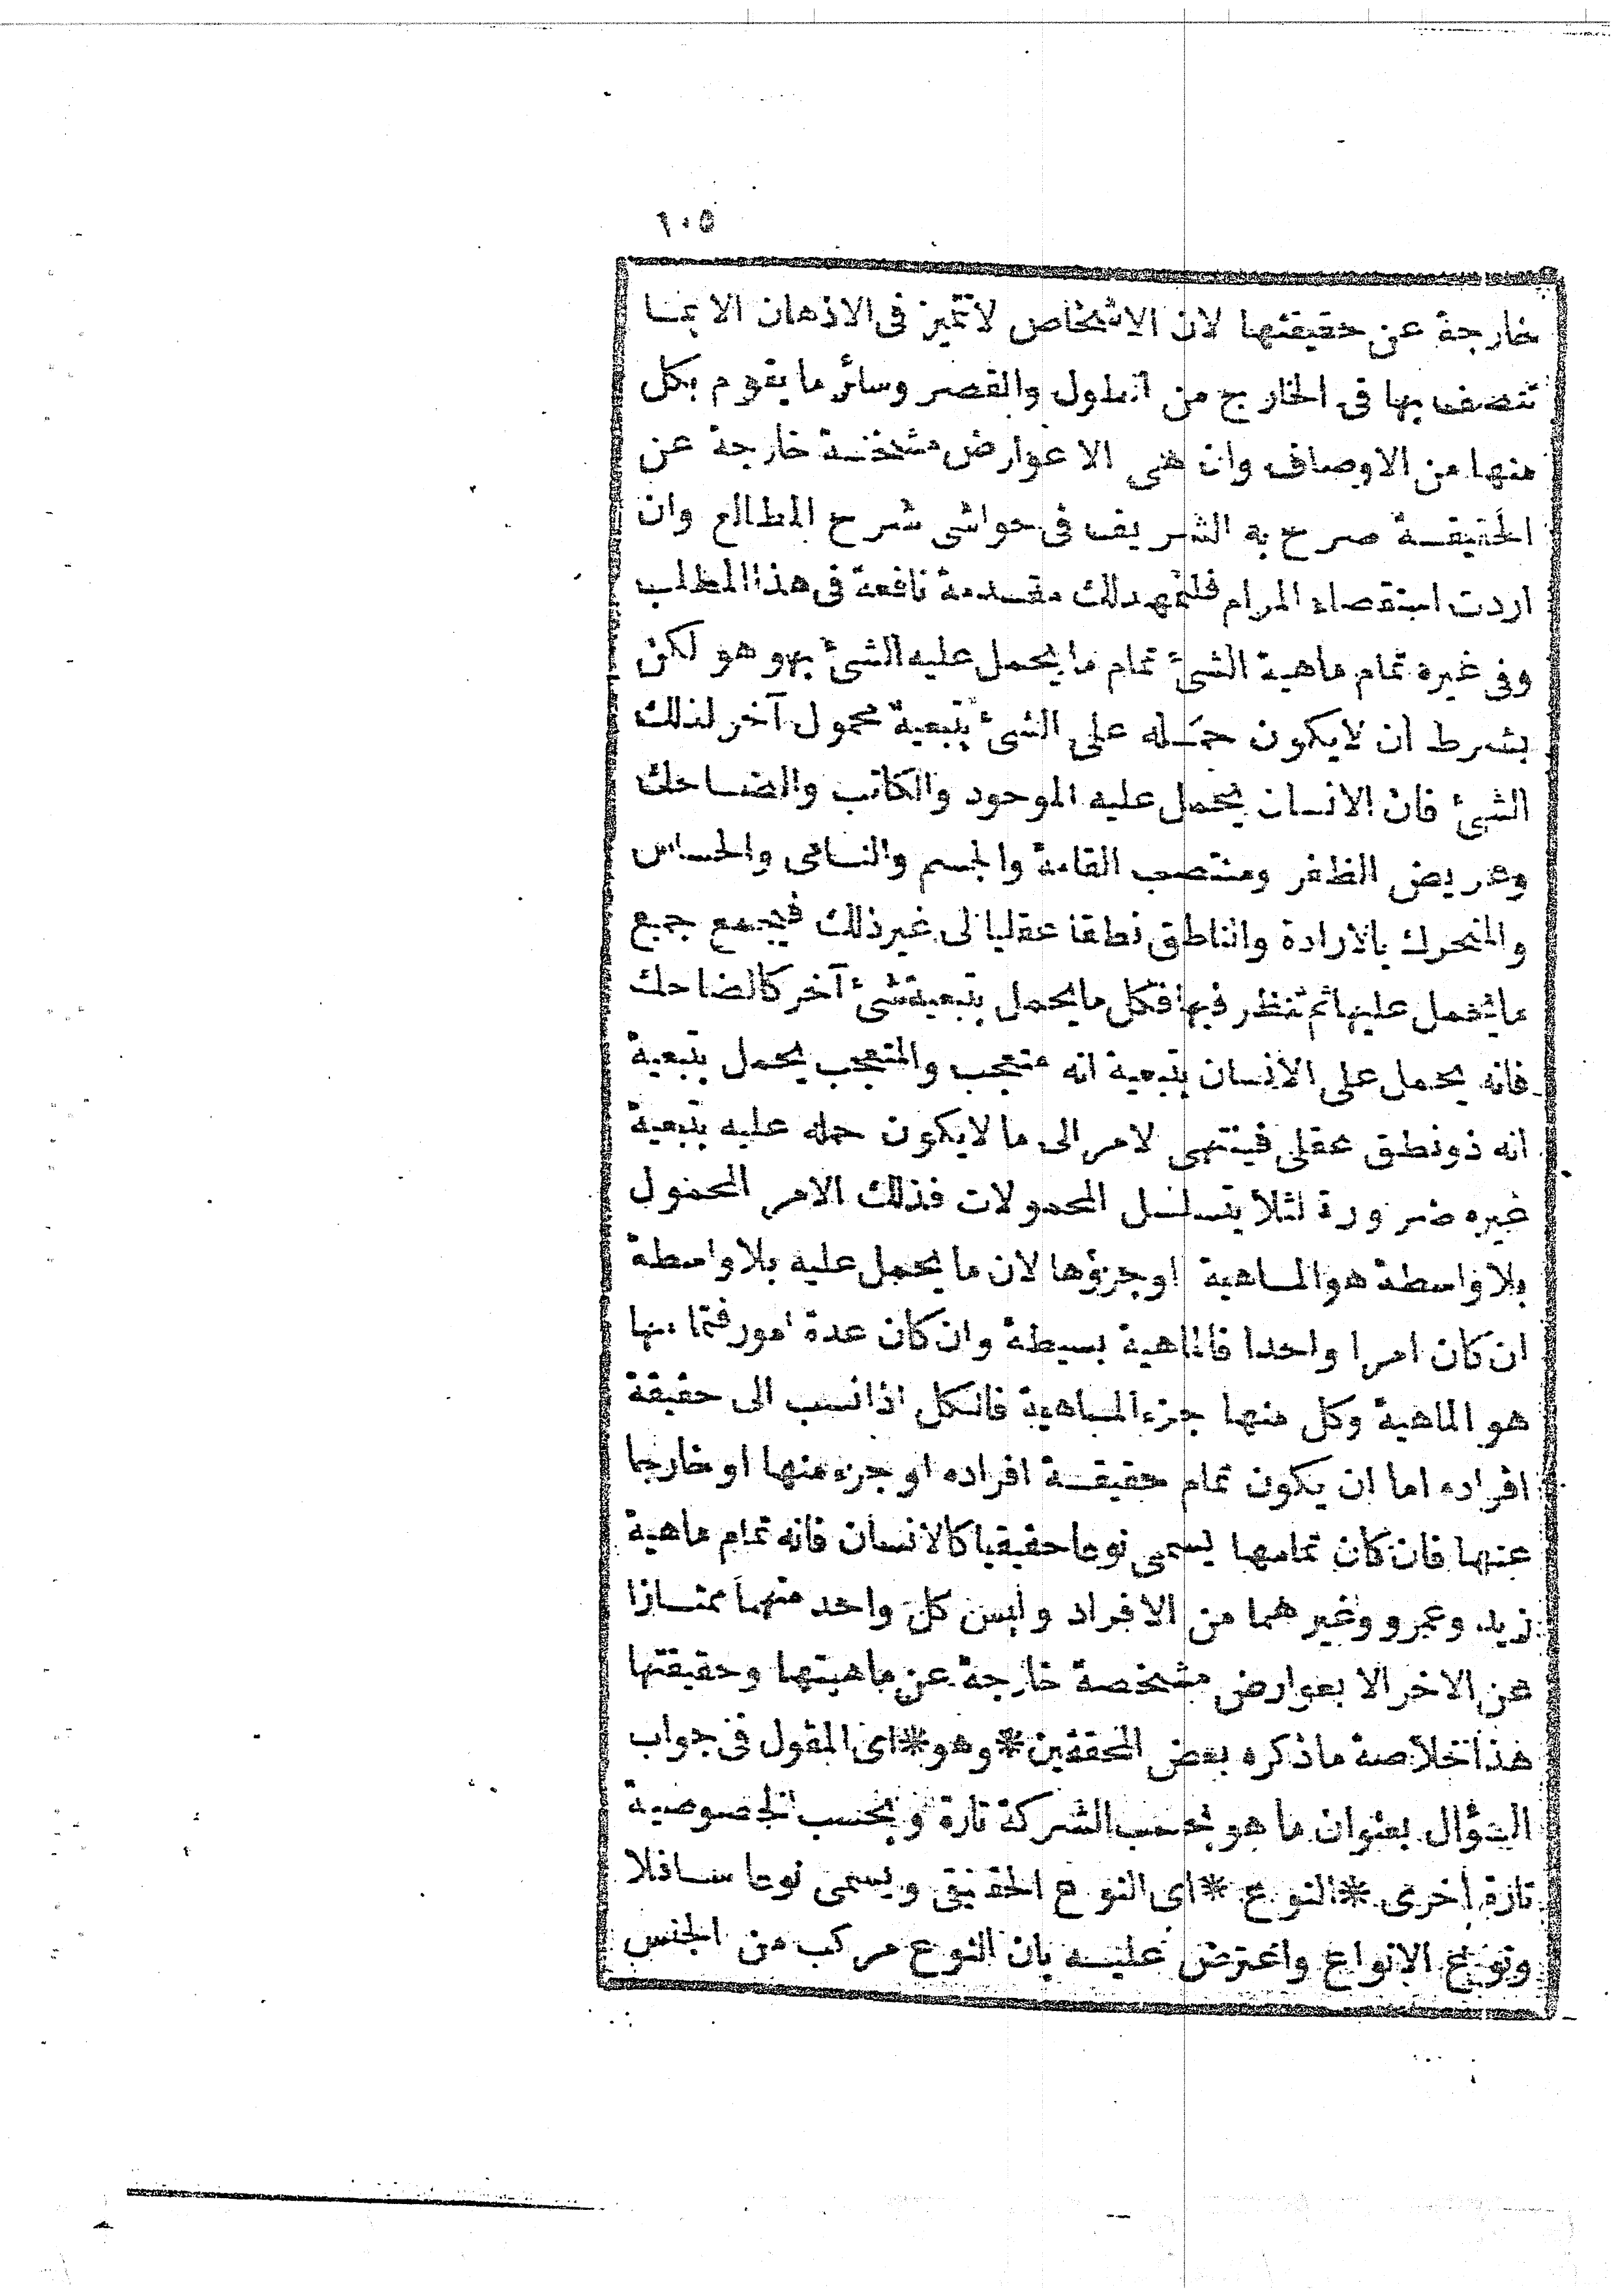 ١٠٥
خارجة عن حقيقتها لان الاشخاص لاتتميز فى الاذهان الا بمـا
تتصف بها فى الخارج من الطول والقصر وسائر ما يقوم بكل
منها من الاوصاف وان هى الا عوارض مشخصـة خارجة عن
الحقيقـة صرح به الشريف فى حواشى شرح المطالع وان
اردت استقصاء المرام فلنمهد لك مقـدمة نافعة فى هذا المطلب
وفى غيره تمام ماهية الشئ تمام ما يحمل عليه الشئ بهو هو لكن
بشرط ان لايكون حمـله على الشئ بتبعية محمول آخر لذلك
الشئ فان الانسان يحمل عليه الموجود والكاتب والضـاحك
وعريض الظفر ومنتصب القامة والجسم والنـامى والحسـاس
والمتحرك بالارادة والناطق نطقا عقليا الى غير ذلك فيجمع جميع
مايحمل عليها ثم تنظر فيها فكل مايحمل بتبعية شئ آخر كالضاحك
فانه يحمل على الانسان بتبعية انه متعجب والمتعجب يحمل بتبعية
انه ذونطق عقلى فينتهى لامر الى ما لايكون حمله عليه بتبعية
غيره ضرورة لئلا يتسلسـل المحمولات فذلك الامر المحمول
بلا واسطة هو المـاهية اوجزؤها لان ما يحمل عليه بلا واسطة
ان كان امرا واحدا فالماهية بسيطة وان كان عدة امور فتمامها
هو الماهية وكل منها جزء المـاهية فالكل اذا نسب الى حقيقة
افراده اما ان يكون تمام حقيقـة افراده او جزء منها او خارجا
عنها فان كان تمامها يسمى نوعا حقيقيا كالانسان فانه تمام ماهية
زيد وعمرو وغيرهما من الافراد وليس كل واحد منهما ممتـازا
عن الاخر الا بعوارض مشخصة خارجة عن ماهيتها وحقيقتها
هذا خلاصة ماذكره بعض المحققين * وهو * اى المقول فى جواب
السؤال بعنوان ما هو بحسب الشركة تارة وبحسب الخصوصية
تارة اخرى * النوع * اى النوع الحقيقى ويسمى نوعا سـافلا
ونوع الانواع واعترض عليـه بان النوع مركب من الجنس